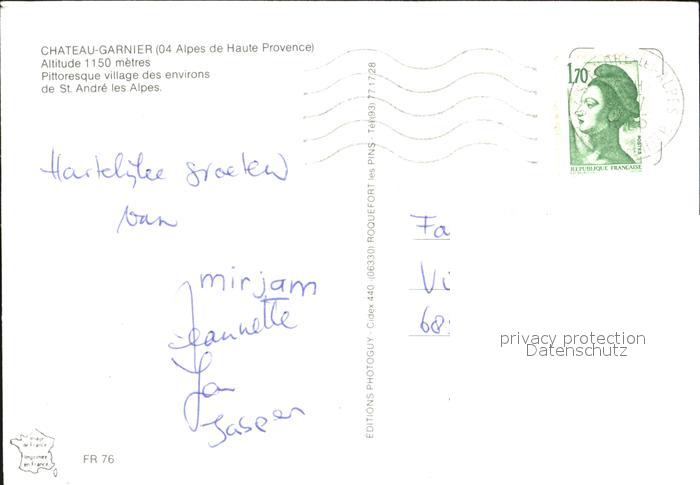 CHATEAU-GARNIER (04 Alpes de Haute Provence)
Altitude 1150 mètres
Pittoresque village des environs
de St. André les Alpes.
Hartelijke groeten
van
mirjam
Jeannette
Jan
Jasper
FR 76
EDITIONS PHOTOGUY - Cidex 440 (06330) ROQUEFORT les PINS - Tél (93) 77 17 28
1,70
POSTES
REPUBLIQUE FRANÇAISE
Fa
Vi
68
privacy protection
Datenschutz